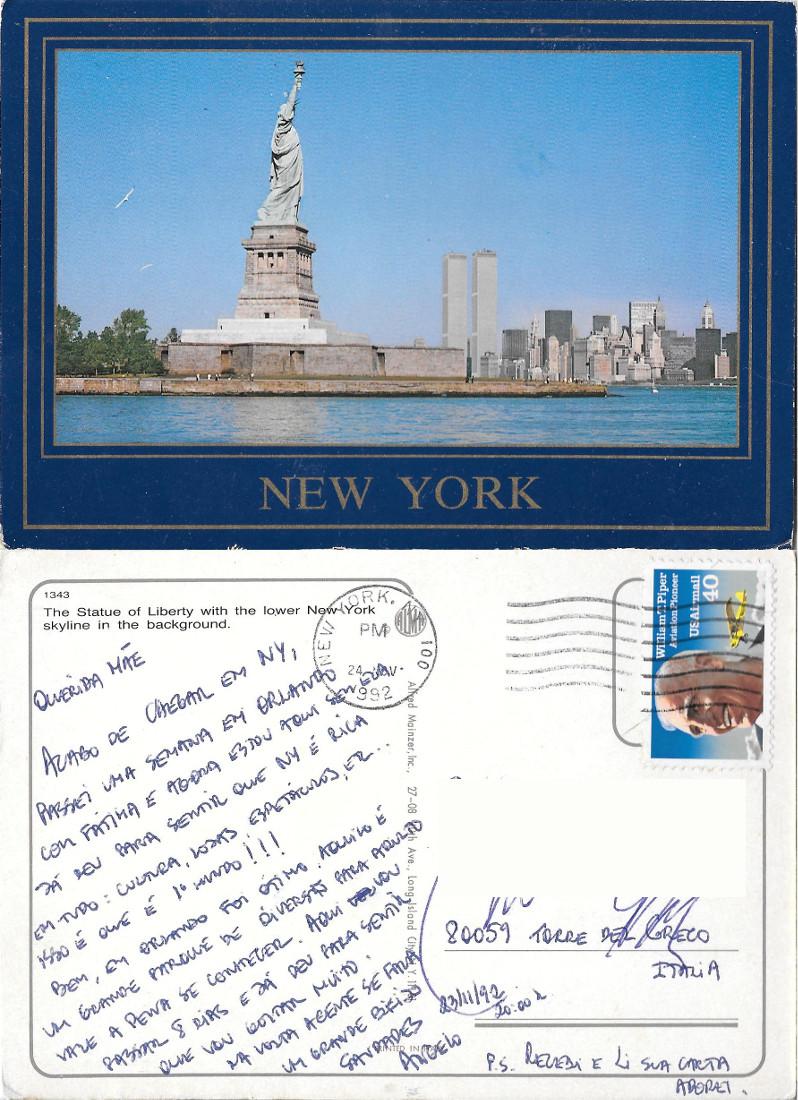 NEW YORK
1343
The Statue of Liberty with the lower New York
skyline in the background.
NEW YORK,
PM
100
24
1992
William T. Piper
Aviation Pioneer
USAirmail
40
QUERIDA MÃE
ACABO DE CHEGAR EM NY,
PASSEI UMA SEMANA EM ORLANDO
COM FÁTIMA E AGORA ESTOU AQUI SEM ELA.
JÁ DEU PARA SENTIR QUE NY É RICA
EM TUDO: CULTURA, LOJAS, ESPETÁCULOS,
ISSO É QUE É 1º MUNDO!!!
BEM, EM ORLANDO FOI ÓTIMO. AQUILO É
UM GRANDE PARQUE DE DIVERSÃO PARA ADULTO
VALE A PENA SE CONHECER. AQUI VOU
PASSAR 8 DIAS E JÁ DEU PARA SENTIR
QUE VOU GOSTAR MUITO.
NA VOLTA AGENTE SE FALA.
UM GRANDE BEIJO
SAUDADES
ANGELO
Alfred Mainzer, Inc., 27-08 Ave., Long Island City, N.Y.
PRINTED IN
80059 TORRE DEL GRECO
ITALIA
23/11/92
20:00 h
P.S. RECEBI E LI SUA CARTA
ADOREI.